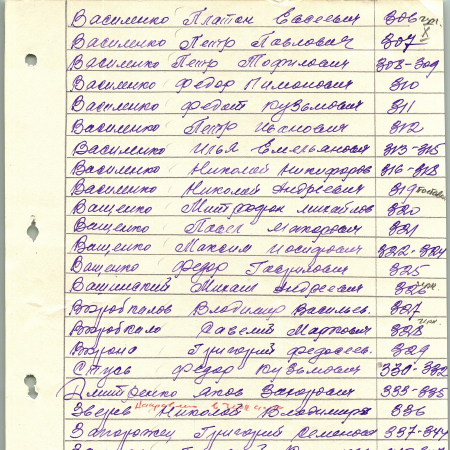 Василенко Платон Евсеевич 306 чрн.
Василенко Петр Павлович 307
Василенко Петр Тофилович 308-309
Василенко Федор Пимонович 310
Василенко Федот Кузьмович 311
Василенко Петр Иванович 312
Василенко Илья Емельянович 313-315
Василенко Николай Никифоров 316-318
Василенко Николай Андреевич 319
Ващенко Митрофан Михайлов. 320
Ващенко Павел Макарович 321
Ващенко Максим Иосифович 322-324
Ващенко Федор Гаврилович 325
Вашинский Михаил Андреевич 326 чрн.
Воробкалов Владимир Васильев. 327
Воробкало Савелий Маркович 328 чрн.
Ворона Григорий Федосеев. 329
Стусь Федор Кузьмович 330-332
Дмитренко Яков Захарович 333-335
Зверев Николай Владимир 336
Запорожец Григорий Семенов 337-344